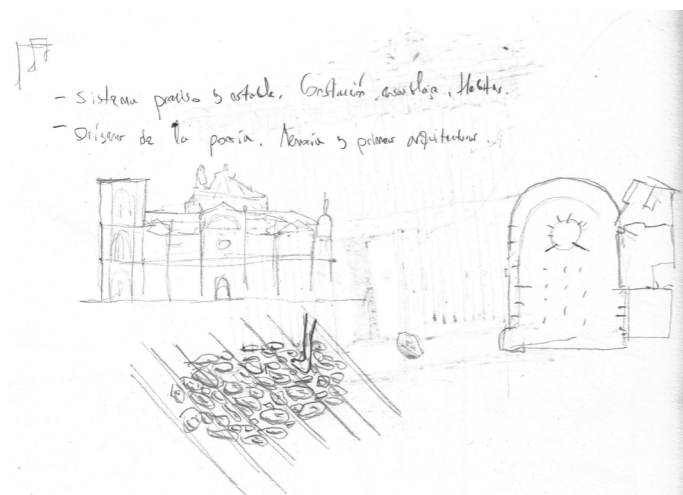 - Sistema preciso y estable. Construcción, ensamblaje, Habitar.
- Orígenes de la poesía. Memoria y primeras arquitecturas.